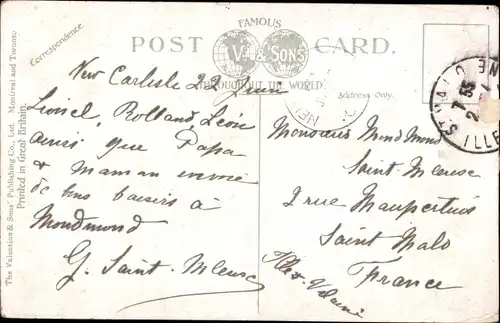 FAMOUS
POST CARD.
V. & SONS'
THROUGHOUT THE WORLD
Correspondence.
Address Only.
The Valentine & Sons' Publishing Co., Ltd. Montreal and Toronto
Printed in Great Britain.
New Carlisle 22 Juin
Lionel, Rolland Léon
ainsi que Papa
& Maman envoie
de bons baisers à
Mondmond
G. Saint-Meuse
Monsieur Mond Mond
Saint-Meuse
2 rue Maupertuis
Saint Malo
France
Ille-et-Vilaine
ST MALO
7 35
ILLE